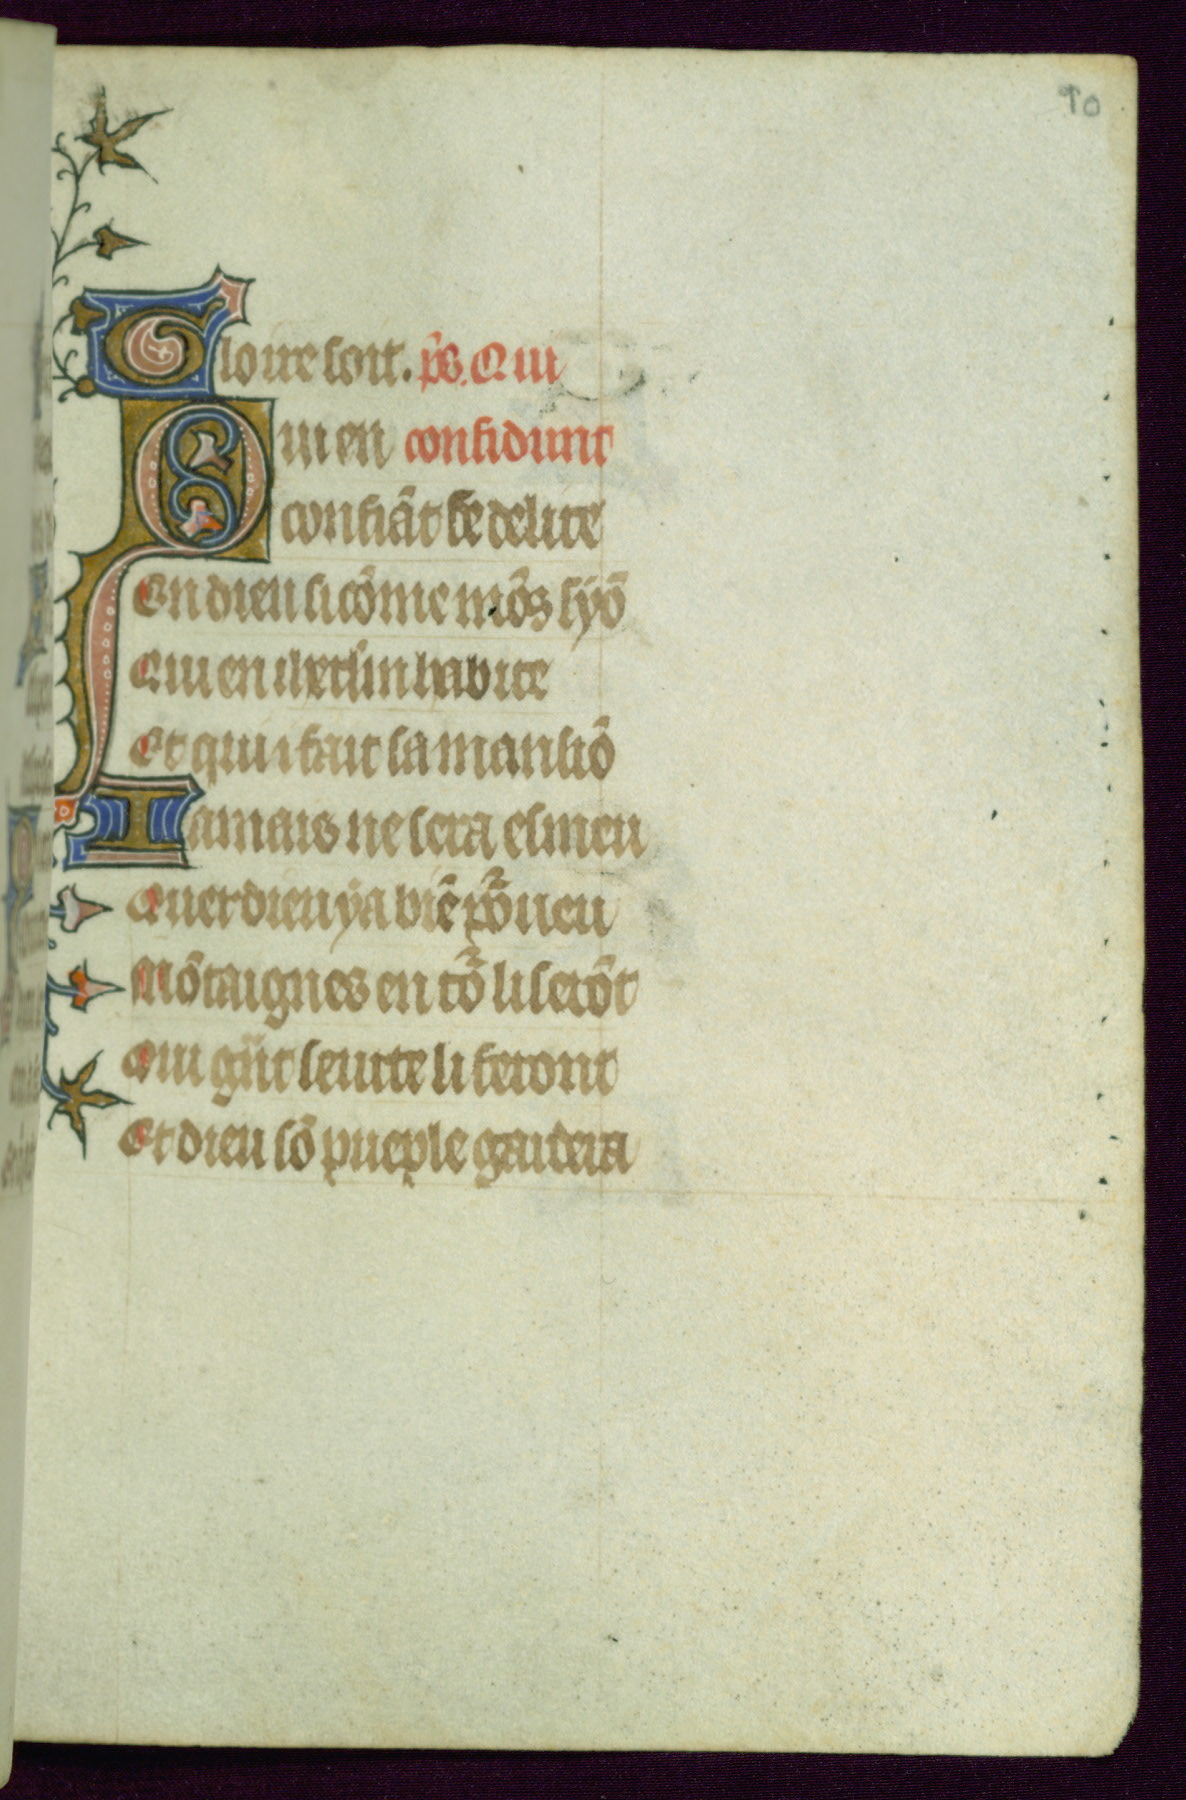 90
Gloire soit. ps. Qui
Qui en confidunt
confiāt se delite
En dieu si cōme mōs syō
Qui en iherl'm habite
Et qui i fait sa mansiō
Iamais ne sera esmeu
Quer dieu ya biē pourueu
Mōtaignes en tō li serōt
Qui gñt seurte li feront
Et dieu sō pueple gardera